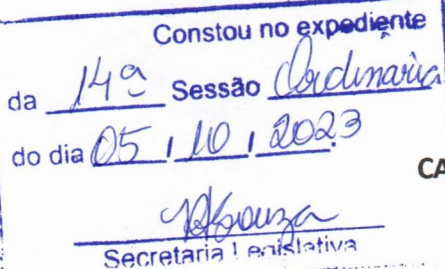 Constou no expediente
da 14ª Sessão Ordinária
do dia 05 / 10 / 2023
CA
Secretaria Legislativa